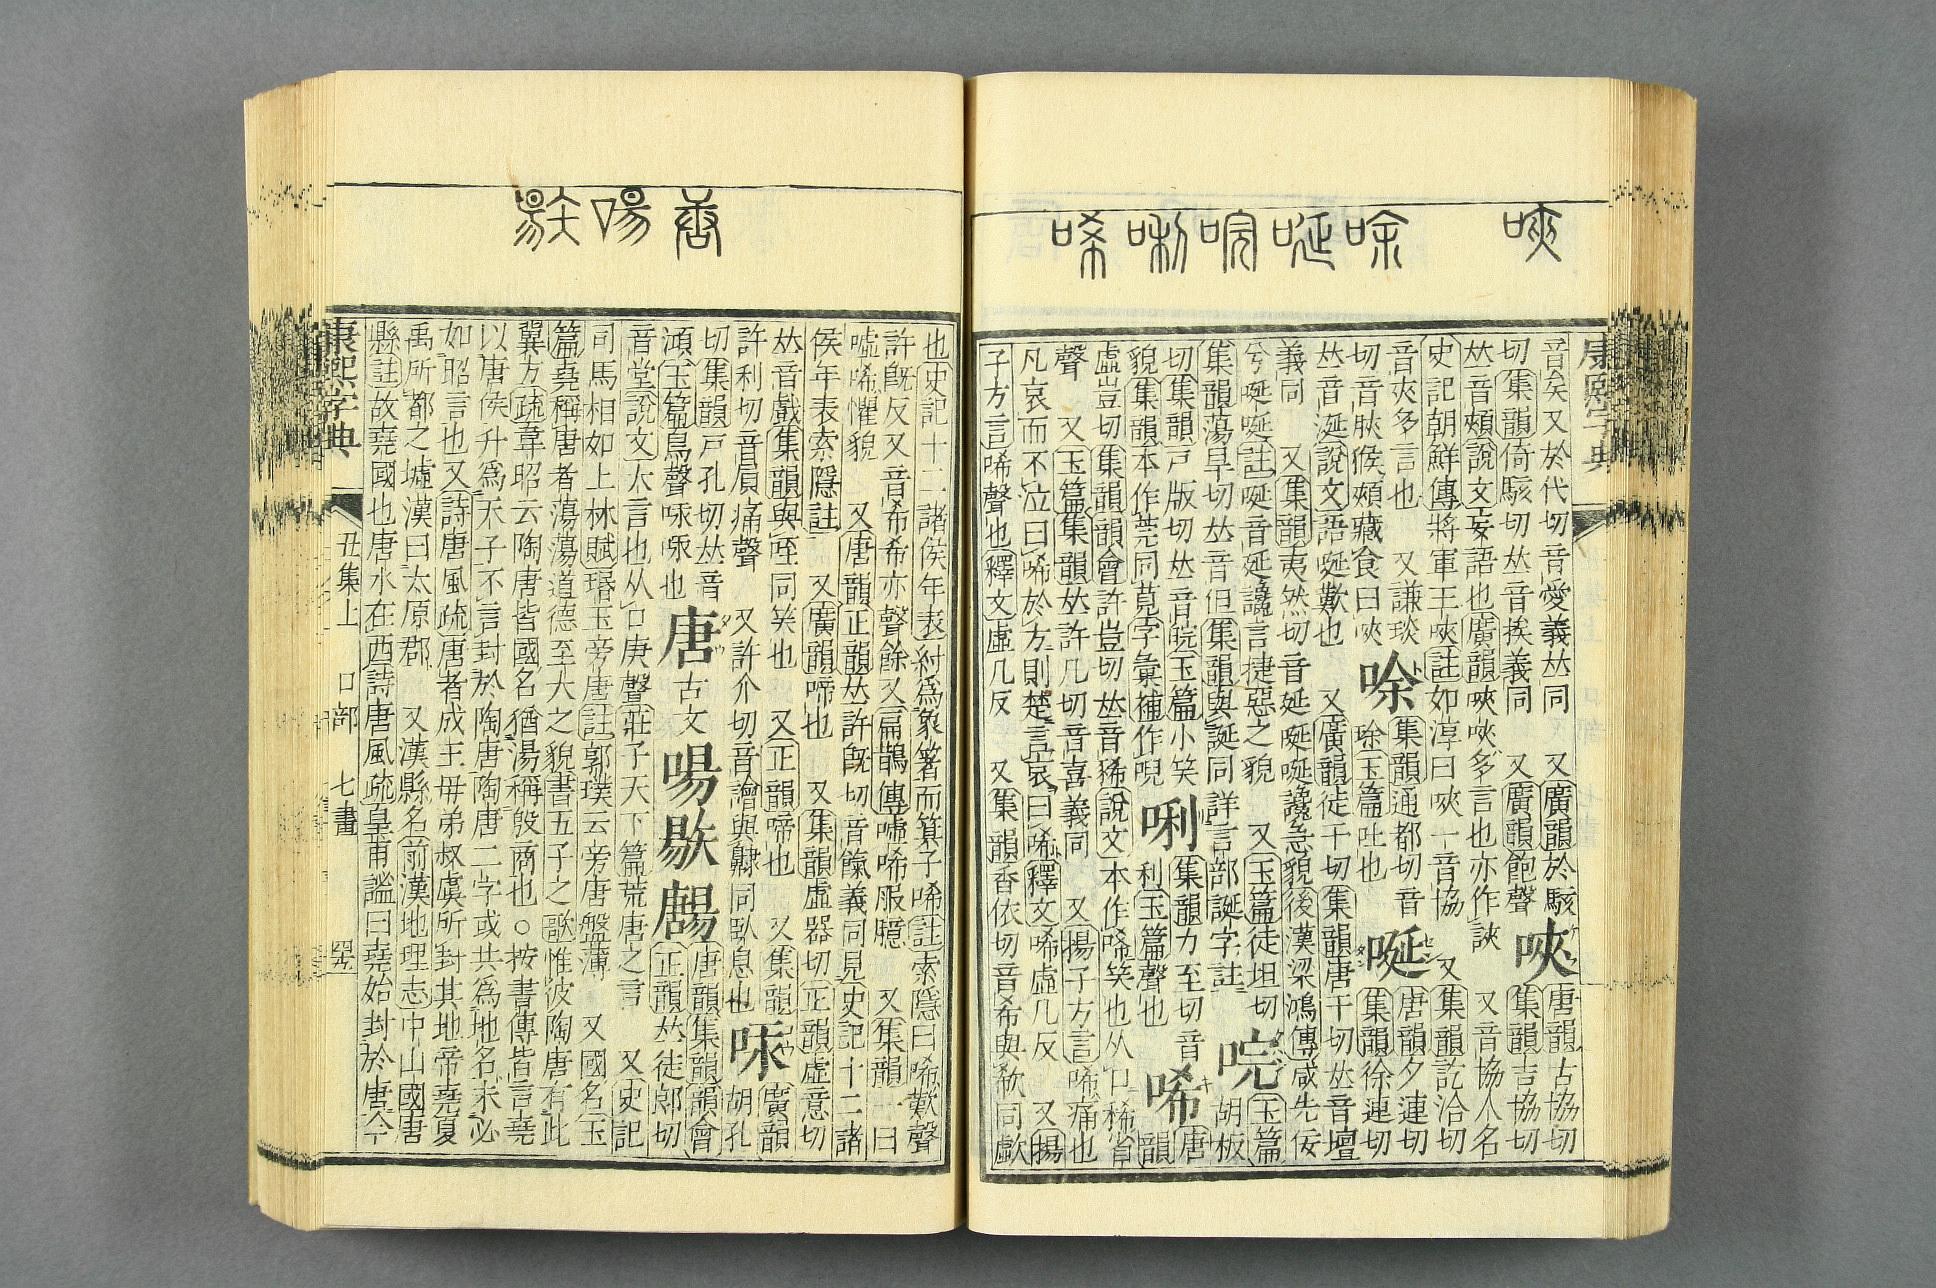 唊 唋 唌 唍 唎 唏
康熙字典
音矣又於代切音愛義𠀤同 又廣韻於駭
切集韻倚駭切𠀤音挨義同 又廣韻飽聲
唊 唐韻古協切集韻吉協切
𠀤音頰說文妄語也廣韻唊唊多言也亦作䛟 又音協人名
史記朝鮮傳將軍王唊註如淳曰唊一音協 又集韻訖洽切
音夾多言也 又謙琰
切音脥猴頰藏食曰唊
唋 集韻通都切音
㻌玉篇吐也
唌 唐韻夕連切集韻徐連切
𠀤音涎說文語唌歎也 又廣韻徒干切集韻唐干切𠀤音壇
義同 又集韻夷然切音延唌唌讒急貌後漢梁鴻傳咸先佞
兮唌唌註唌音延讒言捷惡之貌 又玉篇徒坦切
集韻蕩旱切𠀤音但集韻與誕同詳言部誕字註
唍 玉篇胡板
切集韻戸版切𠀤音睆玉篇小笑
貌集韻本作莞同莧字彙補作唲
唎 集韻力至切音
利玉篇聲也
唏 唐韻
虛豈切集韻韻會許豈切𠀤音豨說文本作唏笑也从口稀省
聲 又玉篇集韻𠀤許几切音喜義同 又揚子方言唏痛也
凡哀而不泣曰唏於方則楚言哀曰唏釋文唏虛几反 又揚
子方言唏聲也釋文虛几反 又集韻香依切音希與欷同歔
唐 喝 𣉺
也史記十二諸侯年表紂爲象箸而箕子唏註索隱曰唏歎聲
許旣反又音希希亦聲餘 又扁鵲傳噓唏服臆 又集韻一曰
噓唏懼貌 又唐韻正韻𠀤許旣切音餼義同見史記十二諸
侯年表索隱註 又廣韻啼也 又集韻虛器切正韻虛意切
𠀤音戲集韻與咥同笑也 又正韻啼也 又集韻
許利切音屓痛聲 又許介切音譮與齂同臥息也
哸 廣韻胡孔
切集韻戸孔切𠀤音
澒玉篇鳥聲哸哸也
唐 古文 啺 𣉺 𪕹 唐韻集韻韻會正韻𠀤徒郞切
音堂說文大言也从口庚聲莊子天下篇荒唐之言 又史記
司馬相如上林賦瑉玉旁唐註郭璞云旁唐盤薄 又國名玉
篇堯稱唐者蕩蕩道德至大之貌書五子之歌惟彼陶唐有此
冀方疏韋昭云陶唐皆國名猶湯稱殷商也○按書傳皆言堯
以唐侯升爲天子不言封於陶唐陶唐二字或共爲地名未必
如昭言也又詩唐風疏唐者成王母弟叔虞所封其地帝堯夏
禹所都之墟漢曰太原郡 又漢縣名前漢地理志中山國唐
縣註故堯國也唐水在西詩唐風疏皇甫謐曰堯始封於唐今
康熙字典 丑集上 口部 七畫